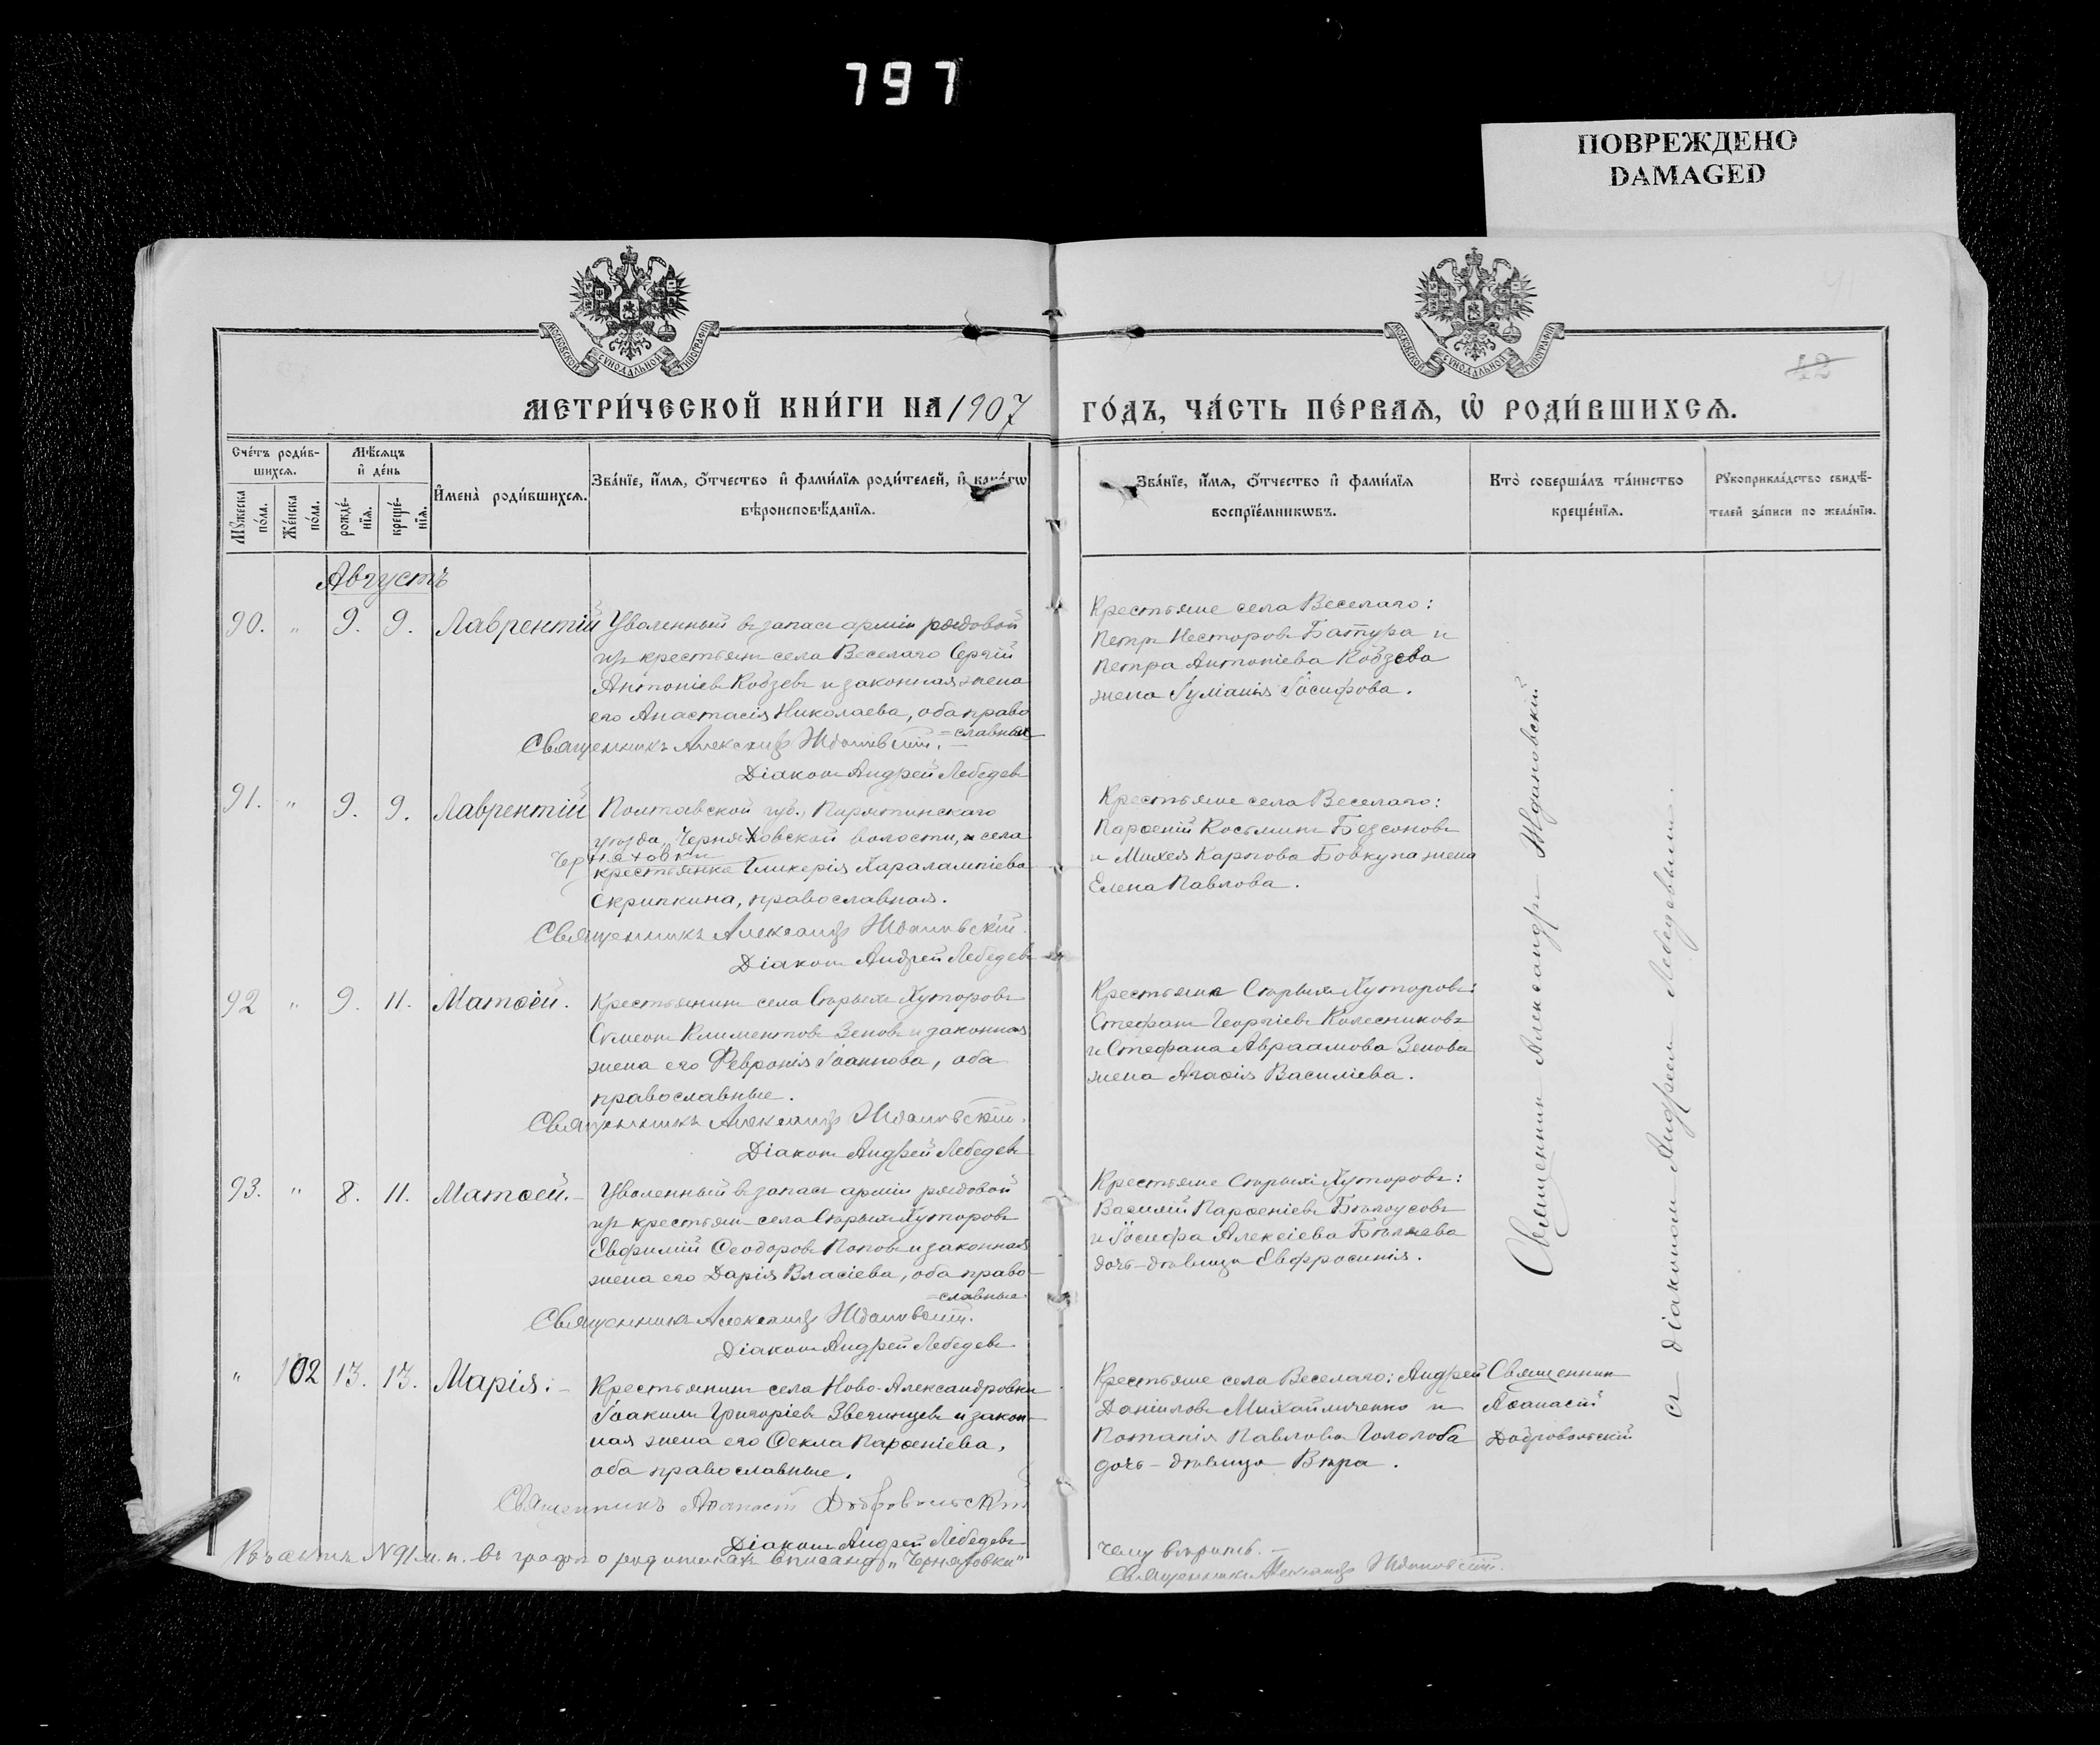 797
ПОВРЕЖДЕНО
DAMAGED
МОСКОВСКОЙ СѴНОДАЛЬНОЙ ТИПОГРАФІИ
МОСКОВСКОЙ СѴНОДАЛЬНОЙ ТИПОГРАФІИ
42
МЕТРИ́ЧЕСКОЙ КНИ́ГИ НА 1907 ГО́ДЪ, ЧА́СТЬ ПЕ́РВАѦ, Ѡ҆ РОДИ́ВШИХСѦ.
Сче́тъ роди́в-
шихсѧ.
Мꙋ́жеска по́ла.
Же́нска по́ла.
Мѣ́сѧцъ
и҆ де́нь
рожде́-
нїѧ.
креще́-
нїѧ.
И҆мена̀ роди́вшихсѧ.
Зва́нїе, и҆́мѧ, ѻ҆́тчество и҆ фами́лїѧ роди́телей, и҆ како́гѡ
вѣроисповѣ́данїѧ.
Зва́нїе, и҆́мѧ, ѻ҆́тчество и҆ фами́лїѧ
воспрїе́мникѡвъ.
Кто̀ соверша́лъ та́инство
креще́нїѧ.
Рꙋкоприкла́дство свидѣ́-
телей за́писи по жела́нїю.
Августъ
90. " 9. 9. Лаврентій
Уволенный въ запасъ арміи рядовой
изъ крестьянъ села Веселаго Сергій
Антоніевъ Кобзевъ и законная жена
его Анастасія Николаева, оба право
=славные
Священникъ Александръ Ждановскій.
Діаконъ Андрей Лебедевъ
Крестьяне села Веселаго:
Петръ Несторовъ Батура и
Петра Антоніева Кобзева
жена Іуліанія Іосифова.
91. " 9. 9. Лаврентій
Полтавской губ., Пирятинскаго
уѣзда, Черняховской волости, села
Черняховки
крестьянка Гликерія Харалампіева
Скрипкина, православная.
Священникъ Александръ Ждановскій.
Діаконъ Андрей Лебедевъ
Крестьяне села Веселаго:
Парѳеній Косьминъ Безсоновъ
и Михея Карпова Бовкуна жена
Елена Павлова.
92 " 9. 11. Матѳей.
Крестьянинъ села Старыхъ Хуторовъ
Сѵмеонъ Климентовъ Зеновъ и законная
жена его Февронія Іоаннова, оба
православные.
Священникъ Александръ Ждановскій.
Діаконъ Андрей Лебедевъ
Крестьяне Старыхъ Хуторовъ:
Стефанъ Георгіевъ Колесниковъ
и Стефана Авраамова Зенова
жена Агаѳія Василіева.
93. " 8. 11. Матѳей.
Уволенный въ запасъ арміи рядовой
изъ крестьянъ села Старыхъ Хуторовъ
Евфимій Ѳеодоровъ Поповъ и законная
жена его Дарія Власіева, оба право-
=славные.
Священникъ Александръ Ждановскій.
Діаконъ Андрей Лебедевъ
Крестьяне Старыхъ Хуторовъ:
Василій Парѳеніевъ Бѣлоусовъ
и Іосифа Алексіева Бѣляева
дочь-дѣвица Евфросинія.
" 102 13. 13. Марія.
Крестьянинъ села Ново-Александровки
Іоакимъ Григоріевъ Звегинцевъ и закон-
ная жена его Ѳекла Парѳеніева,
оба православные.
Священникъ Аѳанасій Добровольскій
Діаконъ Андрей Лебедевъ
Крестьяне села Веселаго: Андрей
Даніиловъ Михайличенко и
Потапія Павлова Гололоба
дочь-дѣвица Вѣра.
Священникъ
Аѳанасій
Добровольскій
Священникъ Александръ Ждановскій
съ діакономъ Андреемъ Лебедевымъ.
Въ актѣ №91 м. п. въ графѣ о родителяхъ вписанному „Черняховки"
чему вѣрить.
Священникъ Александръ Ждановскій.